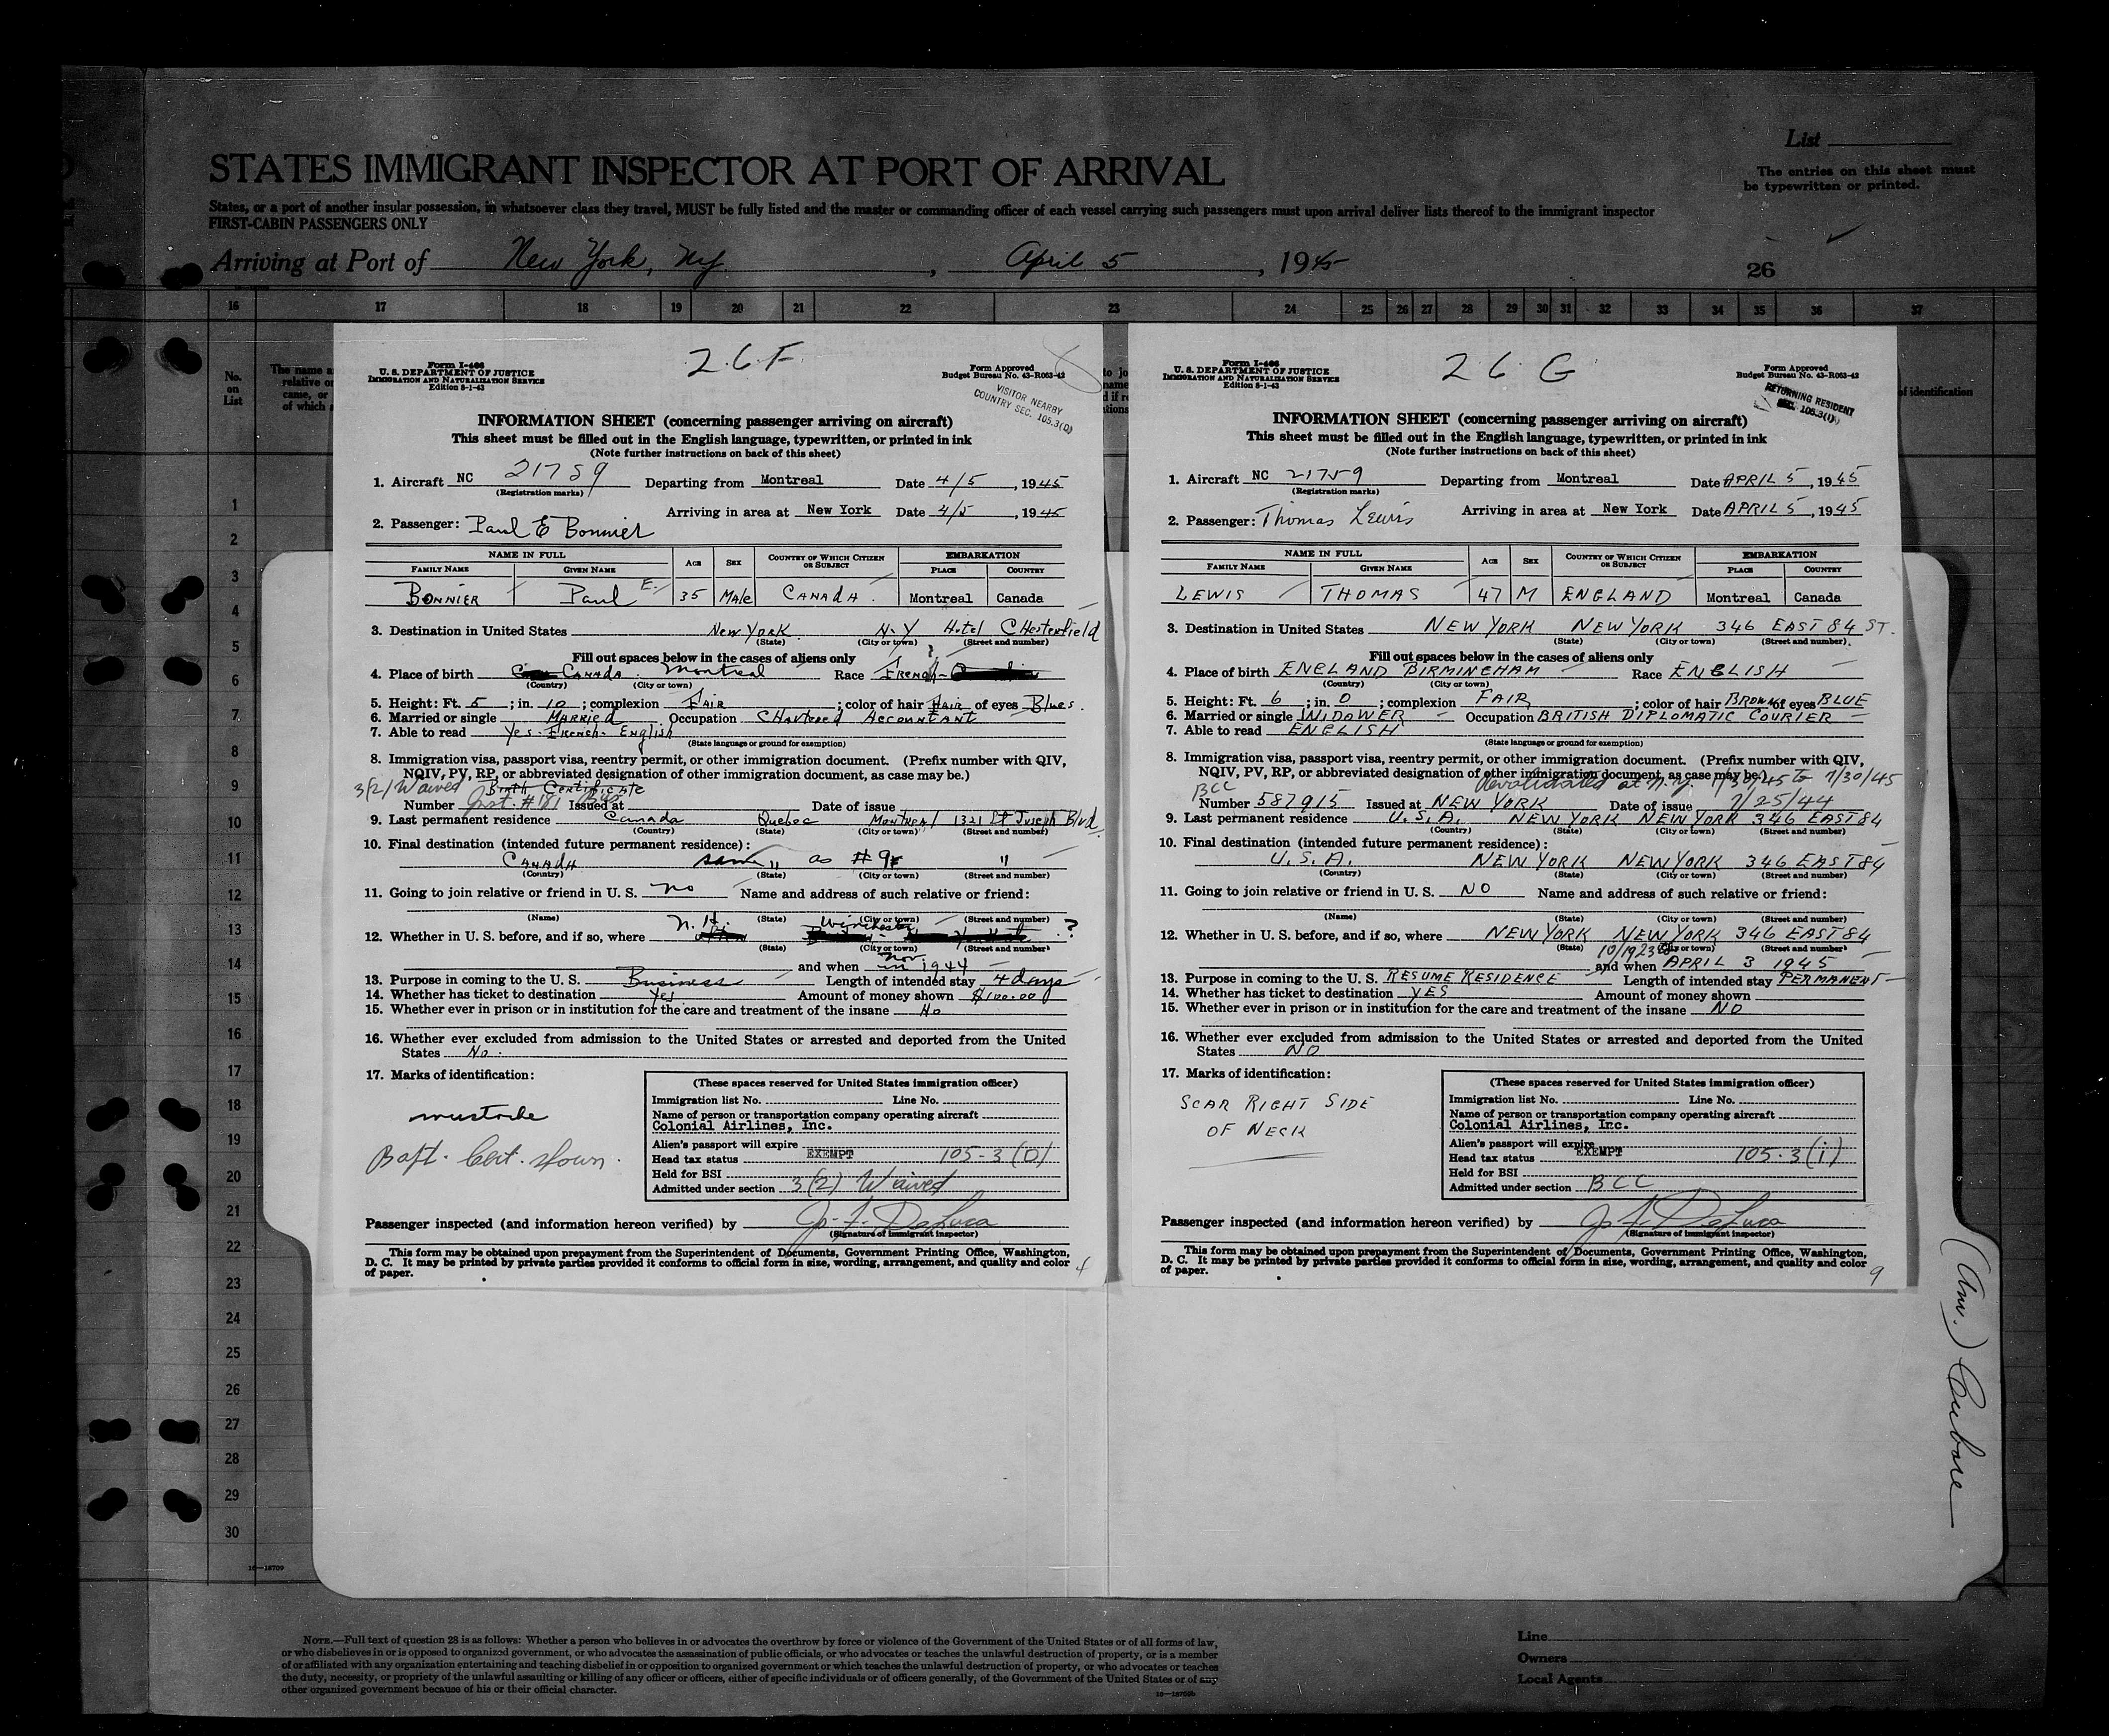 STATES IMMIGRANT INSPECTOR AT PORT OF ARRIVAL
List
The entries on this sheet must
be typewritten or printed.
States, or a port of another insular possession, in whatsoever class they travel, MUST be fully listed and the master or commanding officer of each vessel carrying such passengers must upon arrival deliver lists thereof to the immigrant inspector
FIRST-CABIN PASSENGERS ONLY
Arriving at Port of New York, NY , April 5 , 1945
26
16 17 18 19 20 21 22 23 24 25 26 27 28 29 30 31 32 33 34 35 36 37
No.
on
List
The name a
relative or
came, or
of which
of identification
1
2
3
4
5
6
7
8
9
10
11
12
13
14
15
16
17
18
19
20
21
22
23
24
25
26
27
28
29
30
16—18709
26F
Form I-466
U. S. DEPARTMENT OF JUSTICE
IMMIGRATION AND NATURALIZATION SERVICE
Edition 8-1-43
Form Approved
Budget Bureau No. 43-R063-42
VISITOR NEARBY
COUNTRY SEC. 105.3(D)
INFORMATION SHEET (concerning passenger arriving on aircraft)
This sheet must be filled out in the English language, typewritten, or printed in ink
(Note further instructions on back of this sheet)
1. Aircraft NC 21759 Departing from Montreal Date 4/5, 1945
(Registration marks)
Arriving in area at New York Date 4/5, 1945
2. Passenger: Paul E Bonnier
NAME IN FULL AGE SEX COUNTRY OF WHICH CITIZEN OR SUBJECT EMBARKATION
FAMILY NAME GIVEN NAME PLACE COUNTRY
BONNIER Paul E. 35 Male CANADA. Montreal Canada
3. Destination in United States New York N-Y Hotel CHesterfield
(State) (City or town) (Street and number)
Fill out spaces below in the cases of aliens only
4. Place of birth CANADA. Montreal Race French-
(Country) (City or town)
5. Height: Ft. 5 ; in. 10 ; complexion Fair ; color of hair Hair of eyes Blues.
6. Married or single Married Occupation CHartered Accountant
7. Able to read Yes-French-English
(State language or ground for exemption)
8. Immigration visa, passport visa, reentry permit, or other immigration document. (Prefix number with QIV,
NQIV, PV, RP, or abbreviated designation of other immigration document, as case may be.)
3(2) Waived Birth Certificate
Number Issued at Date of issue
9. Last permanent residence Canada Quebec Montreal 1321 St Joseph Blvd.
(Country) (State) (City or town) (Street and number)
10. Final destination (intended future permanent residence):
CANADA same " as #9 "
(Country) (State) (City or town) (Street and number)
11. Going to join relative or friend in U. S. no Name and address of such relative or friend:
(Name) (State) (City or town) (Street and number)
N.H. Winchester ?
12. Whether in U. S. before, and if so, where
(State) (City or town) (Street and number)
and when Nov. in 1944
13. Purpose in coming to the U. S. Business Length of intended stay 4 days
14. Whether has ticket to destination Yes Amount of money shown $100.00
15. Whether ever in prison or in institution for the care and treatment of the insane No
16. Whether ever excluded from admission to the United States or arrested and deported from the United
States No.
17. Marks of identification:
mustache
Bapt. Cert. shown.
(These spaces reserved for United States immigration officer)
Immigration list No. Line No.
Name of person or transportation company operating aircraft
Colonial Airlines, Inc.
Alien's passport will expire
Head tax status EXEMPT 105-3(D)
Held for BSI
Admitted under section 3(2) Waived
Passenger inspected (and information hereon verified) by J. F. DeLuca
(Signature of immigrant inspector)
This form may be obtained upon prepayment from the Superintendent of Documents, Government Printing Office, Washington,
D. C. It may be printed by private parties provided it conforms to official form in size, wording, arrangement, and quality and color
of paper.
4
26 G
Form I-466
U. S. DEPARTMENT OF JUSTICE
IMMIGRATION AND NATURALIZATION SERVICE
Edition 8-1-43
Form Approved
Budget Bureau No. 43-R063-42
RETURNING RESIDENT
SEC. 105.3(I)
INFORMATION SHEET (concerning passenger arriving on aircraft)
This sheet must be filled out in the English language, typewritten, or printed in ink
(Note further instructions on back of this sheet)
1. Aircraft NC 21759 Departing from Montreal Date APRIL 5, 1945
(Registration marks)
Arriving in area at New York Date APRIL 5, 1945
2. Passenger: Thomas Lewis
NAME IN FULL AGE SEX COUNTRY OF WHICH CITIZEN OR SUBJECT EMBARKATION
FAMILY NAME GIVEN NAME PLACE COUNTRY
LEWIS THOMAS 47 M ENGLAND Montreal Canada
3. Destination in United States NEW YORK NEW YORK 346 EAST 84 ST.
(State) (City or town) (Street and number)
Fill out spaces below in the cases of aliens only
4. Place of birth ENGLAND BIRMINGHAM Race ENGLISH
(Country) (City or town)
5. Height: Ft. 6 ; in. 0 ; complexion FAIR ; color of hair BROWN of eyes BLUE
6. Married or single WIDOWER Occupation BRITISH DIPLOMATIC COURIER
7. Able to read ENGLISH
(State language or ground for exemption)
8. Immigration visa, passport visa, reentry permit, or other immigration document. (Prefix number with QIV,
NQIV, PV, RP, or abbreviated designation of other immigration document, as case may be.)
Revalidated at N.Y. 1/30/45 to 7/30/45
BCC
Number 587915 Issued at NEW YORK Date of issue 7/25/44
9. Last permanent residence U.S.A. NEW YORK NEW YORK 346 EAST 84
(Country) (State) (City or town) (Street and number)
10. Final destination (intended future permanent residence):
U.S.A. NEW YORK NEW YORK 346 EAST 84
(Country) (State) (City or town) (Street and number)
11. Going to join relative or friend in U. S. NO Name and address of such relative or friend:
(Name) (State) (City or town) (Street and number)
12. Whether in U. S. before, and if so, where NEW YORK NEW YORK 346 EAST 84
(State) (City or town) (Street and number)
and when APRIL 3 1945
13. Purpose in coming to the U. S. RESUME RESIDENCE Length of intended stay PERMANENT
14. Whether has ticket to destination YES Amount of money shown
15. Whether ever in prison or in institution for the care and treatment of the insane NO
16. Whether ever excluded from admission to the United States or arrested and deported from the United
States NO
17. Marks of identification:
SCAR RIGHT SIDE
OF NECK
(These spaces reserved for United States immigration officer)
Immigration list No. Line No.
Name of person or transportation company operating aircraft
Colonial Airlines, Inc.
Alien's passport will expire
Head tax status EXEMPT 105-3(i)
Held for BSI
Admitted under section BCC
Passenger inspected (and information hereon verified) by J. F. DeLuca
(Signature of immigrant inspector)
This form may be obtained upon prepayment from the Superintendent of Documents, Government Printing Office, Washington,
D. C. It may be printed by private parties provided it conforms to official form in size, wording, arrangement, and quality and color
of paper.
9
NOTE.—Full text of question 28 is as follows: Whether a person who believes in or advocates the overthrow by force or violence of the Government of the United States or of all forms of law,
or who disbelieves in or is opposed to organized government, or who advocates the assassination of public officials, or who advocates or teaches the unlawful destruction of property, or is a member
of or affiliated with any organization entertaining and teaching disbelief in or opposition to organized government or which teaches the unlawful destruction of property, or who advocates or teaches
the duty, necessity, or propriety of the unlawful assaulting or killing of any officer or officers, either of specific individuals or of officers generally, of the Government of the United States or of any
other organized government because of his or their official character.
Line
Owners
Local Agents